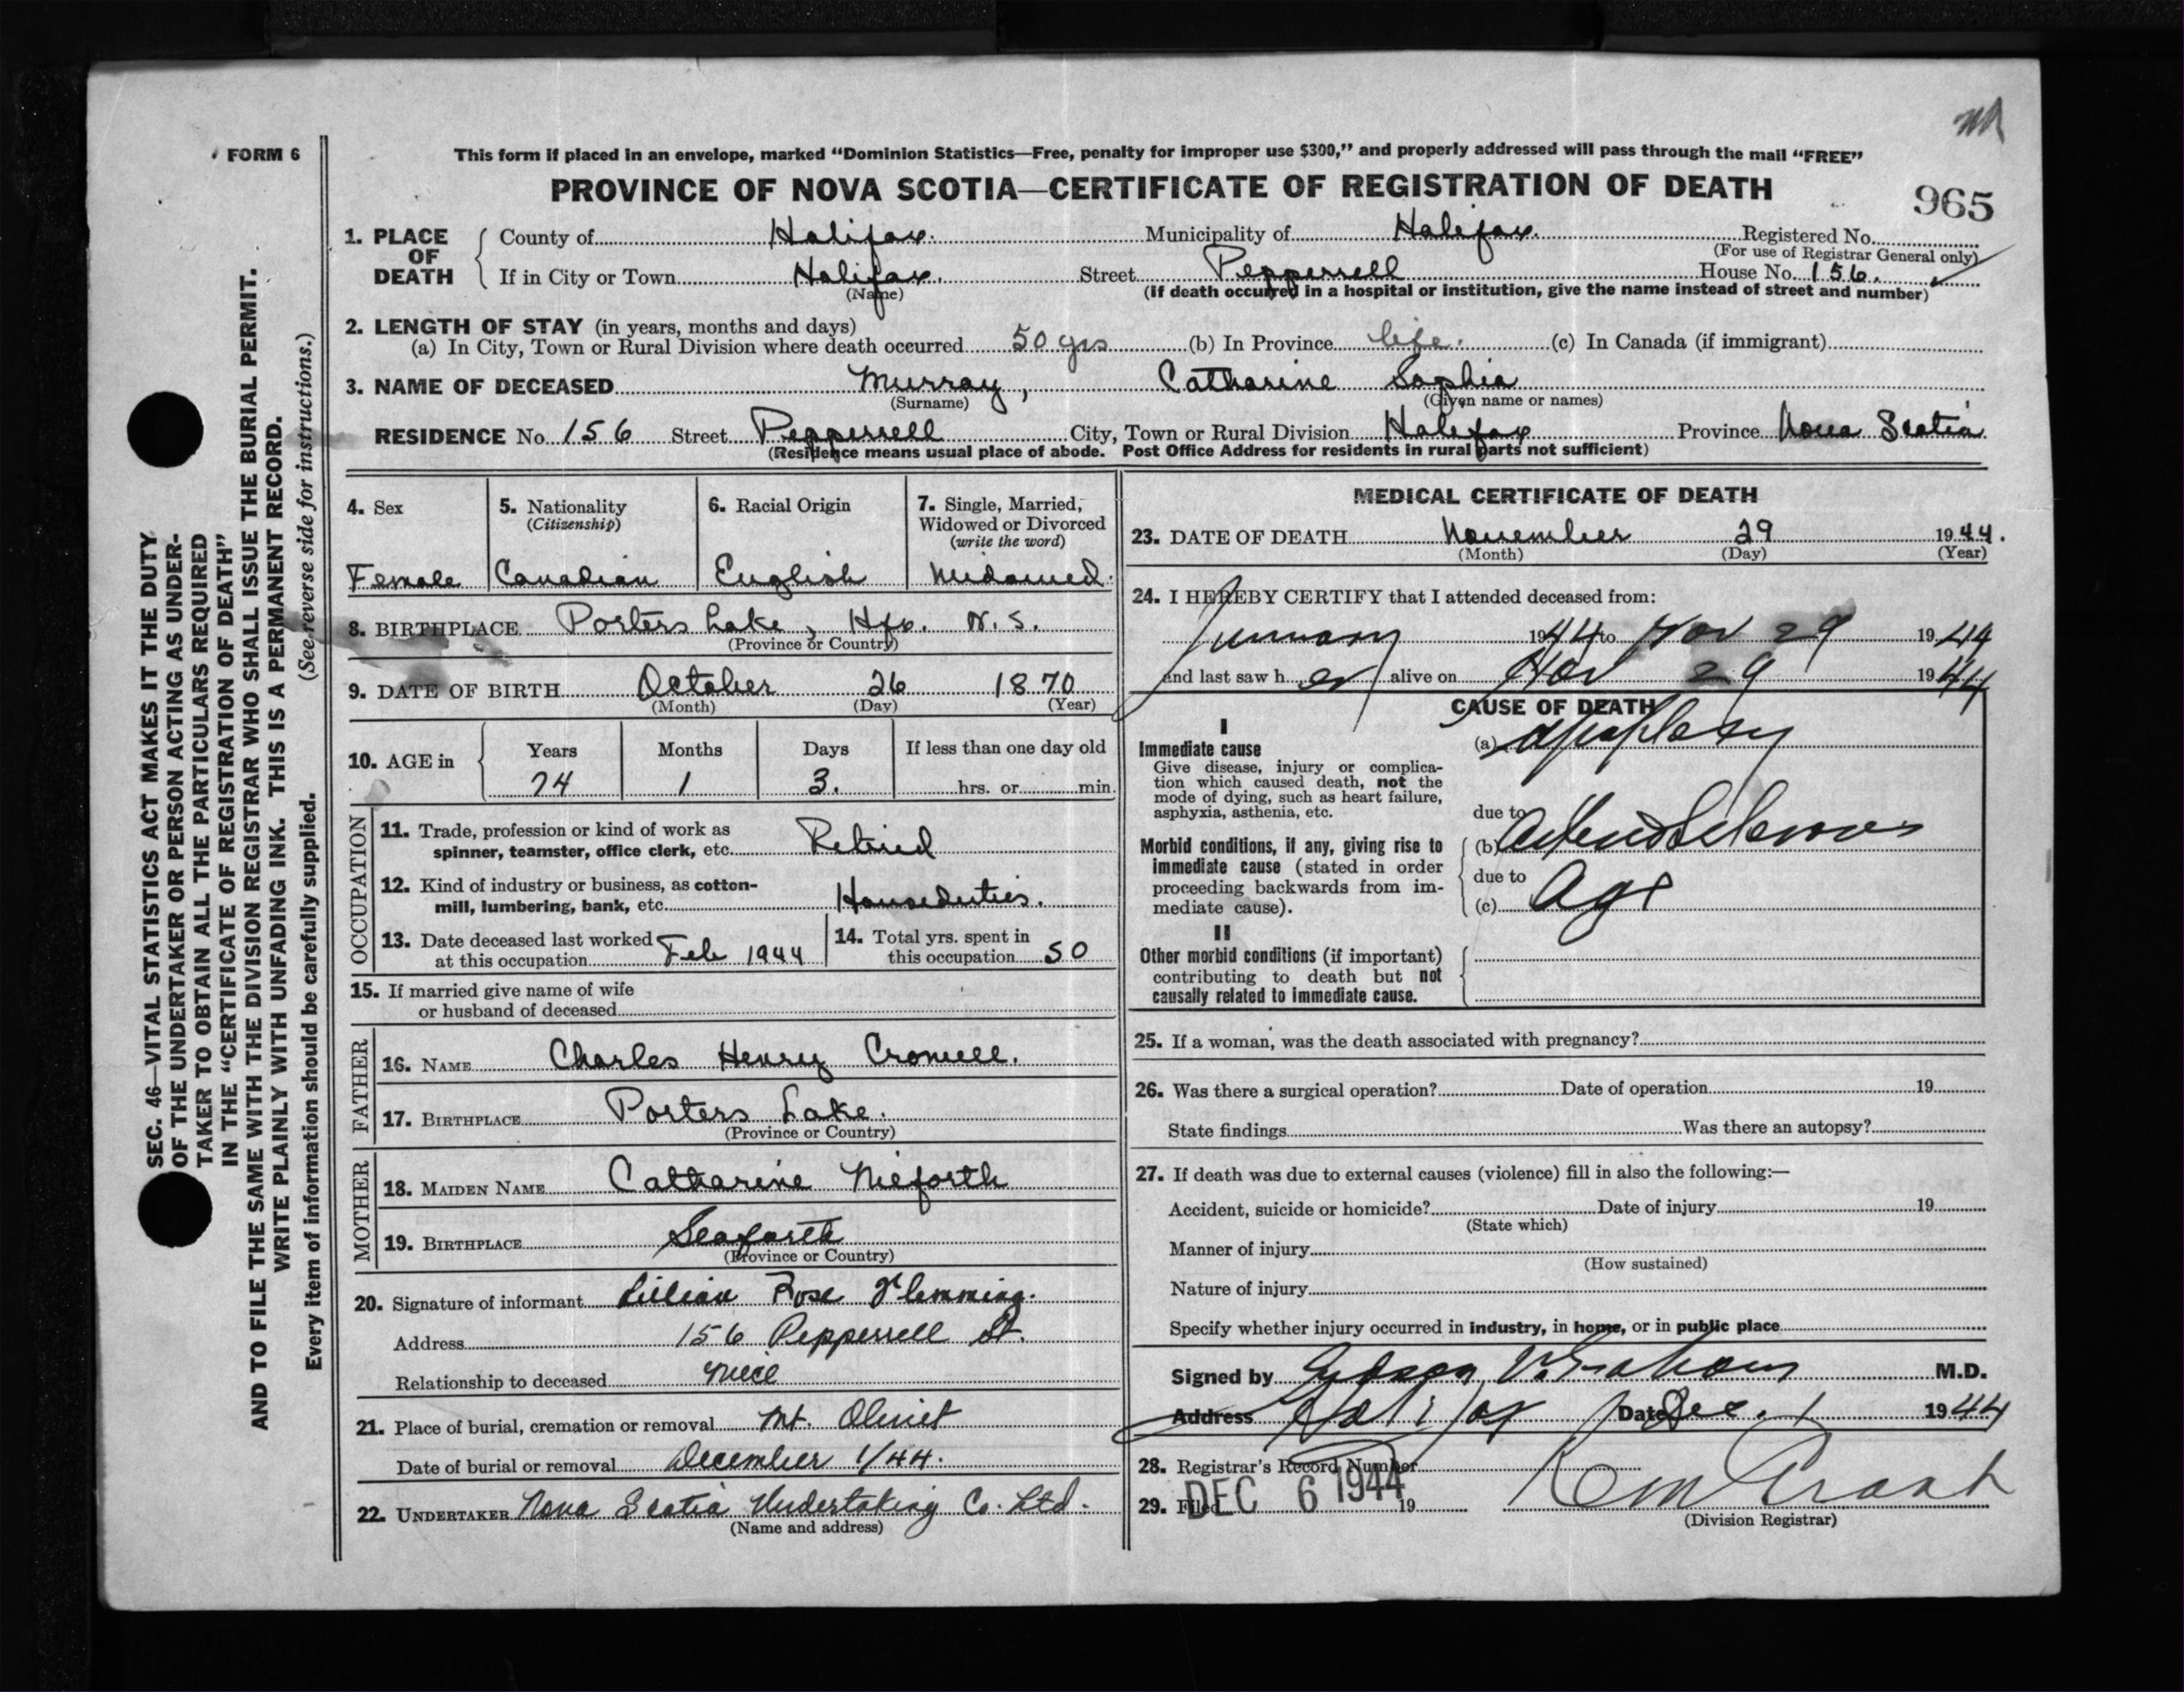 FORM 6
This form if placed in an envelope, marked “Dominion Statistics—Free, penalty for improper use $300,” and properly addressed will pass through the mail “FREE”
PROVINCE OF NOVA SCOTIA—CERTIFICATE OF REGISTRATION OF DEATH
965
1. PLACE OF DEATH
County of Halifax. Municipality of Halifax. Registered No.
(For use of Registrar General only)
If in City or Town Halifax. Street Pepperrell House No. 156.
(Name) (If death occurred in a hospital or institution, give the name instead of street and number)
2. LENGTH OF STAY (in years, months and days)
(a) In City, Town or Rural Division where death occurred 50 yrs (b) In Province life. (c) In Canada (if immigrant)
3. NAME OF DECEASED Murray, Catharine Sophia
(Surname) (Given name or names)
RESIDENCE No. 156 Street Pepperrell City, Town or Rural Division Halifax Province Nova Scotia
(Residence means usual place of abode. Post Office Address for residents in rural parts not sufficient)
SEC. 46—VITAL STATISTICS ACT MAKES IT THE DUTY
OF THE UNDERTAKER OR PERSON ACTING AS UNDER-
TAKER TO OBTAIN ALL THE PARTICULARS REQUIRED
IN THE “CERTIFICATE OF REGISTRATION OF DEATH”
AND TO FILE THE SAME WITH THE DIVISION REGISTRAR WHO SHALL ISSUE THE BURIAL PERMIT.
WRITE PLAINLY WITH UNFADING INK. THIS IS A PERMANENT RECORD.
Every item of information should be carefully supplied. (See reverse side for instructions.)
4. Sex
Female
5. Nationality
(Citizenship)
Canadian
6. Racial Origin
English
7. Single, Married,
Widowed or Divorced
(write the word)
Widowed.
8. BIRTHPLACE Porters Lake, Hfx. N.S.
(Province or Country)
9. DATE OF BIRTH October 26 1870
(Month) (Day) (Year)
10. AGE in
Years Months Days If less than one day old
74 1 3. hrs. or min.
OCCUPATION
11. Trade, profession or kind of work as
spinner, teamster, office clerk, etc. Retired
12. Kind of industry or business, as cotton-
mill, lumbering, bank, etc. Houseduties.
13. Date deceased last worked
at this occupation Feb 1944
14. Total yrs. spent in
this occupation 50
15. If married give name of wife
or husband of deceased
FATHER
16. NAME Charles Henry Cromell.
17. BIRTHPLACE Porters Lake.
(Province or Country)
MOTHER
18. MAIDEN NAME Catharine Nieforth
19. BIRTHPLACE Seaforth
(Province or Country)
20. Signature of informant Lillian Rose Flemming.
Address 156 Pepperrell St.
Relationship to deceased niece
21. Place of burial, cremation or removal Mt. Olivet
Date of burial or removal December 1/44.
22. UNDERTAKER Nova Scotia Undertaking Co. Ltd.
(Name and address)
MEDICAL CERTIFICATE OF DEATH
23. DATE OF DEATH November 29 1944.
(Month) (Day) (Year)
24. I HEREBY CERTIFY that I attended deceased from:
January 1944 to Nov 29 1944
and last saw her alive on Nov 29 1944
CAUSE OF DEATH
I
Immediate cause
Give disease, injury or complica-
tion which caused death, not the
mode of dying, such as heart failure,
asphyxia, asthenia, etc.
(a) apoplexy
due to
Morbid conditions, if any, giving rise to
immediate cause (stated in order
proceeding backwards from im-
mediate cause).
(b)
due to
(c) Age
II
Other morbid conditions (if important)
contributing to death but not
causally related to immediate cause.
25. If a woman, was the death associated with pregnancy?
26. Was there a surgical operation? Date of operation 19
State findings Was there an autopsy?
27. If death was due to external causes (violence) fill in also the following:—
Accident, suicide or homicide? Date of injury 19
(State which)
Manner of injury
(How sustained)
Nature of injury
Specify whether injury occurred in industry, in home, or in public place
Signed by M.D.
Address Halifax Date Dec. 1 1944
28. Registrar's Record Number
29. Filed DEC 6 1944 19
(Division Registrar)